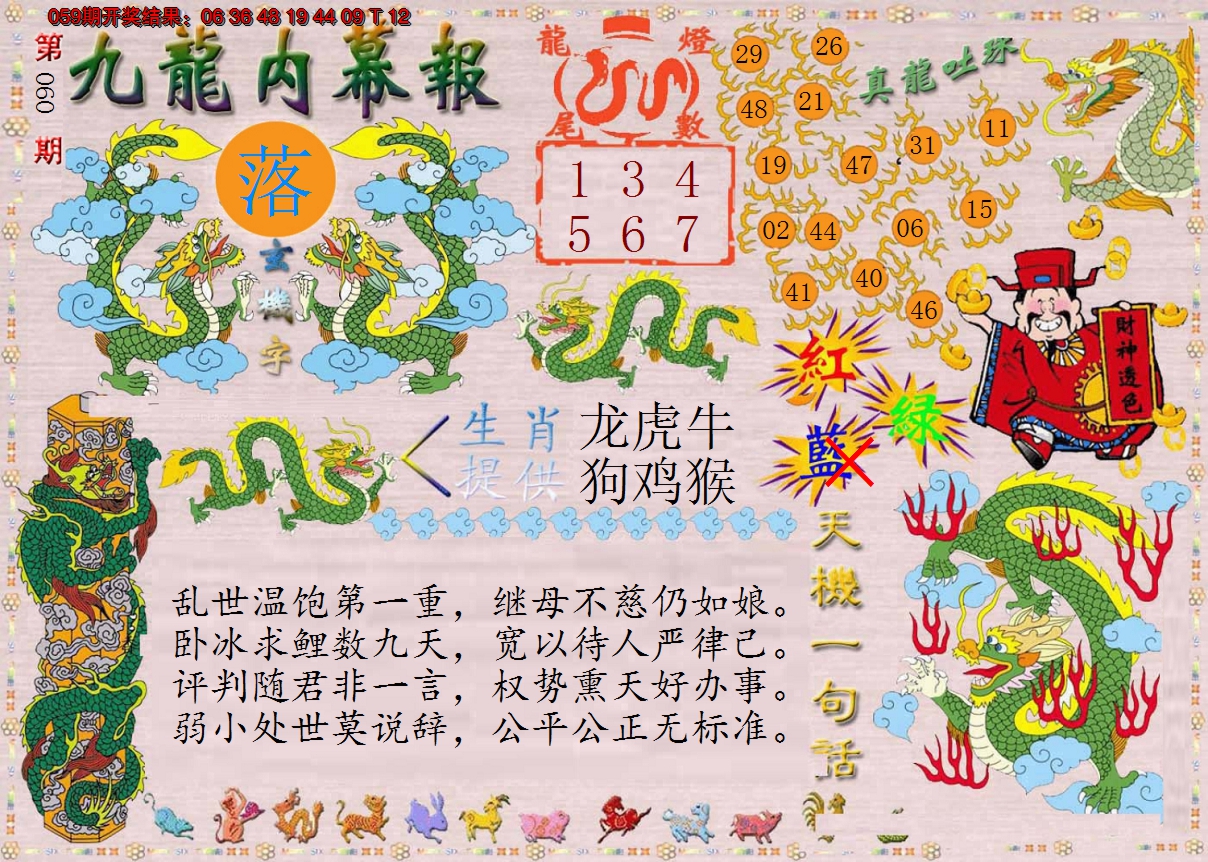 059期开奖结果：06 36 48 19 44 09 T 12
第060期
九龍内幕報
落
玄機字
龍燈
尾數
1 3 4
5 6 7
真龍吐珠
29 26
48 21
19 47 31 11
02 44 06 15
41 40 46
財神透色
紅
绿
藍
生肖
提供
龙虎牛
狗鸡猴
天機一句话
乱世温饱第一重，继母不慈仍如娘。
卧冰求鲤数九天，宽以待人严律己。
评判随君非一言，权势熏天好办事。
弱小处世莫说辞，公平公正无标准。